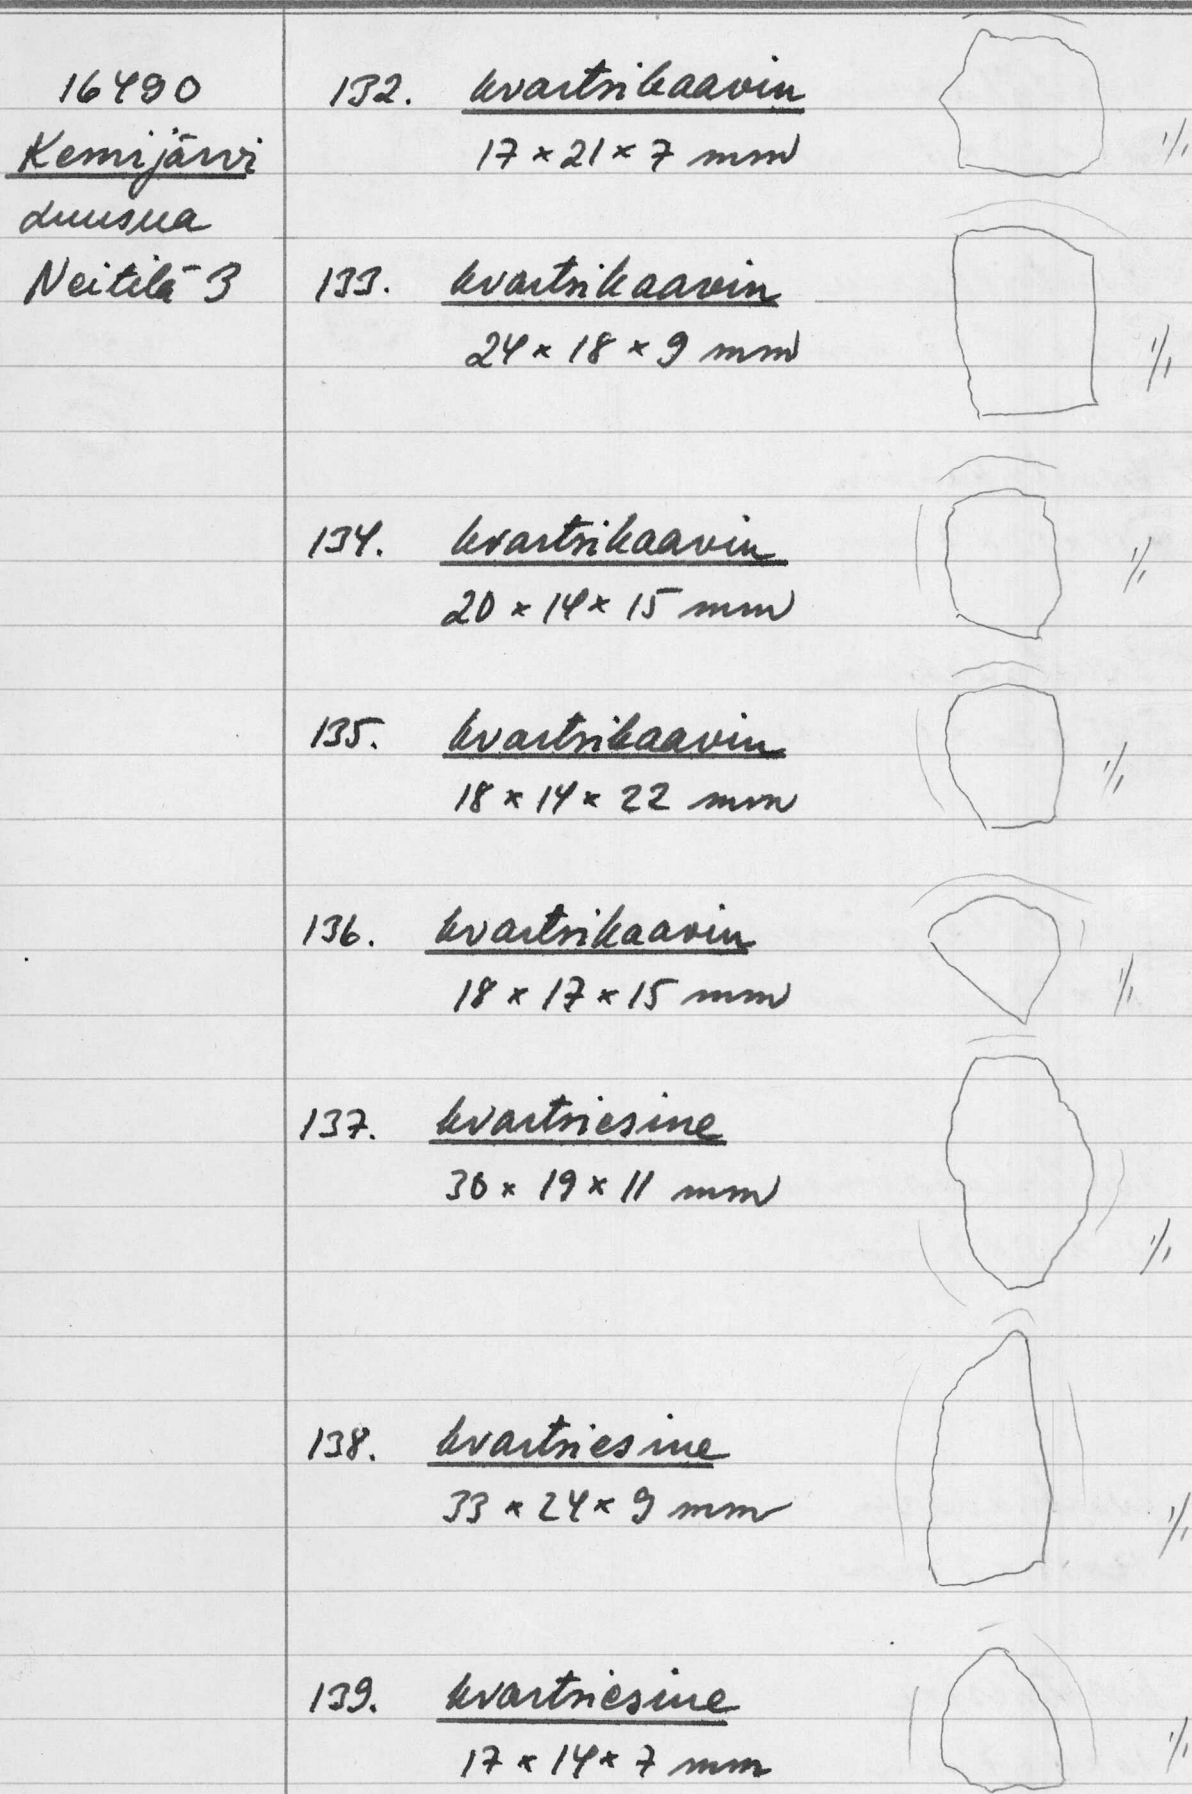 16490
Kemijärvi
Luusua
Neitilä 3
132. kvartsikaavin
17 × 21 × 7 mm
1/1
133. kvartsikaavin
24 × 18 × 9 mm
1/1
134. kvartsikaavin
20 × 14 × 15 mm
1/1
135. kvartsikaavin
18 × 14 × 22 mm
1/1
136. kvartsikaavin
18 × 17 × 15 mm
1/1
137. kvartsiesine
30 × 19 × 11 mm
1/1
138. kvartsiesine
33 × 24 × 9 mm
1/1
139. kvartsiesine
17 × 14 × 7 mm
1/1